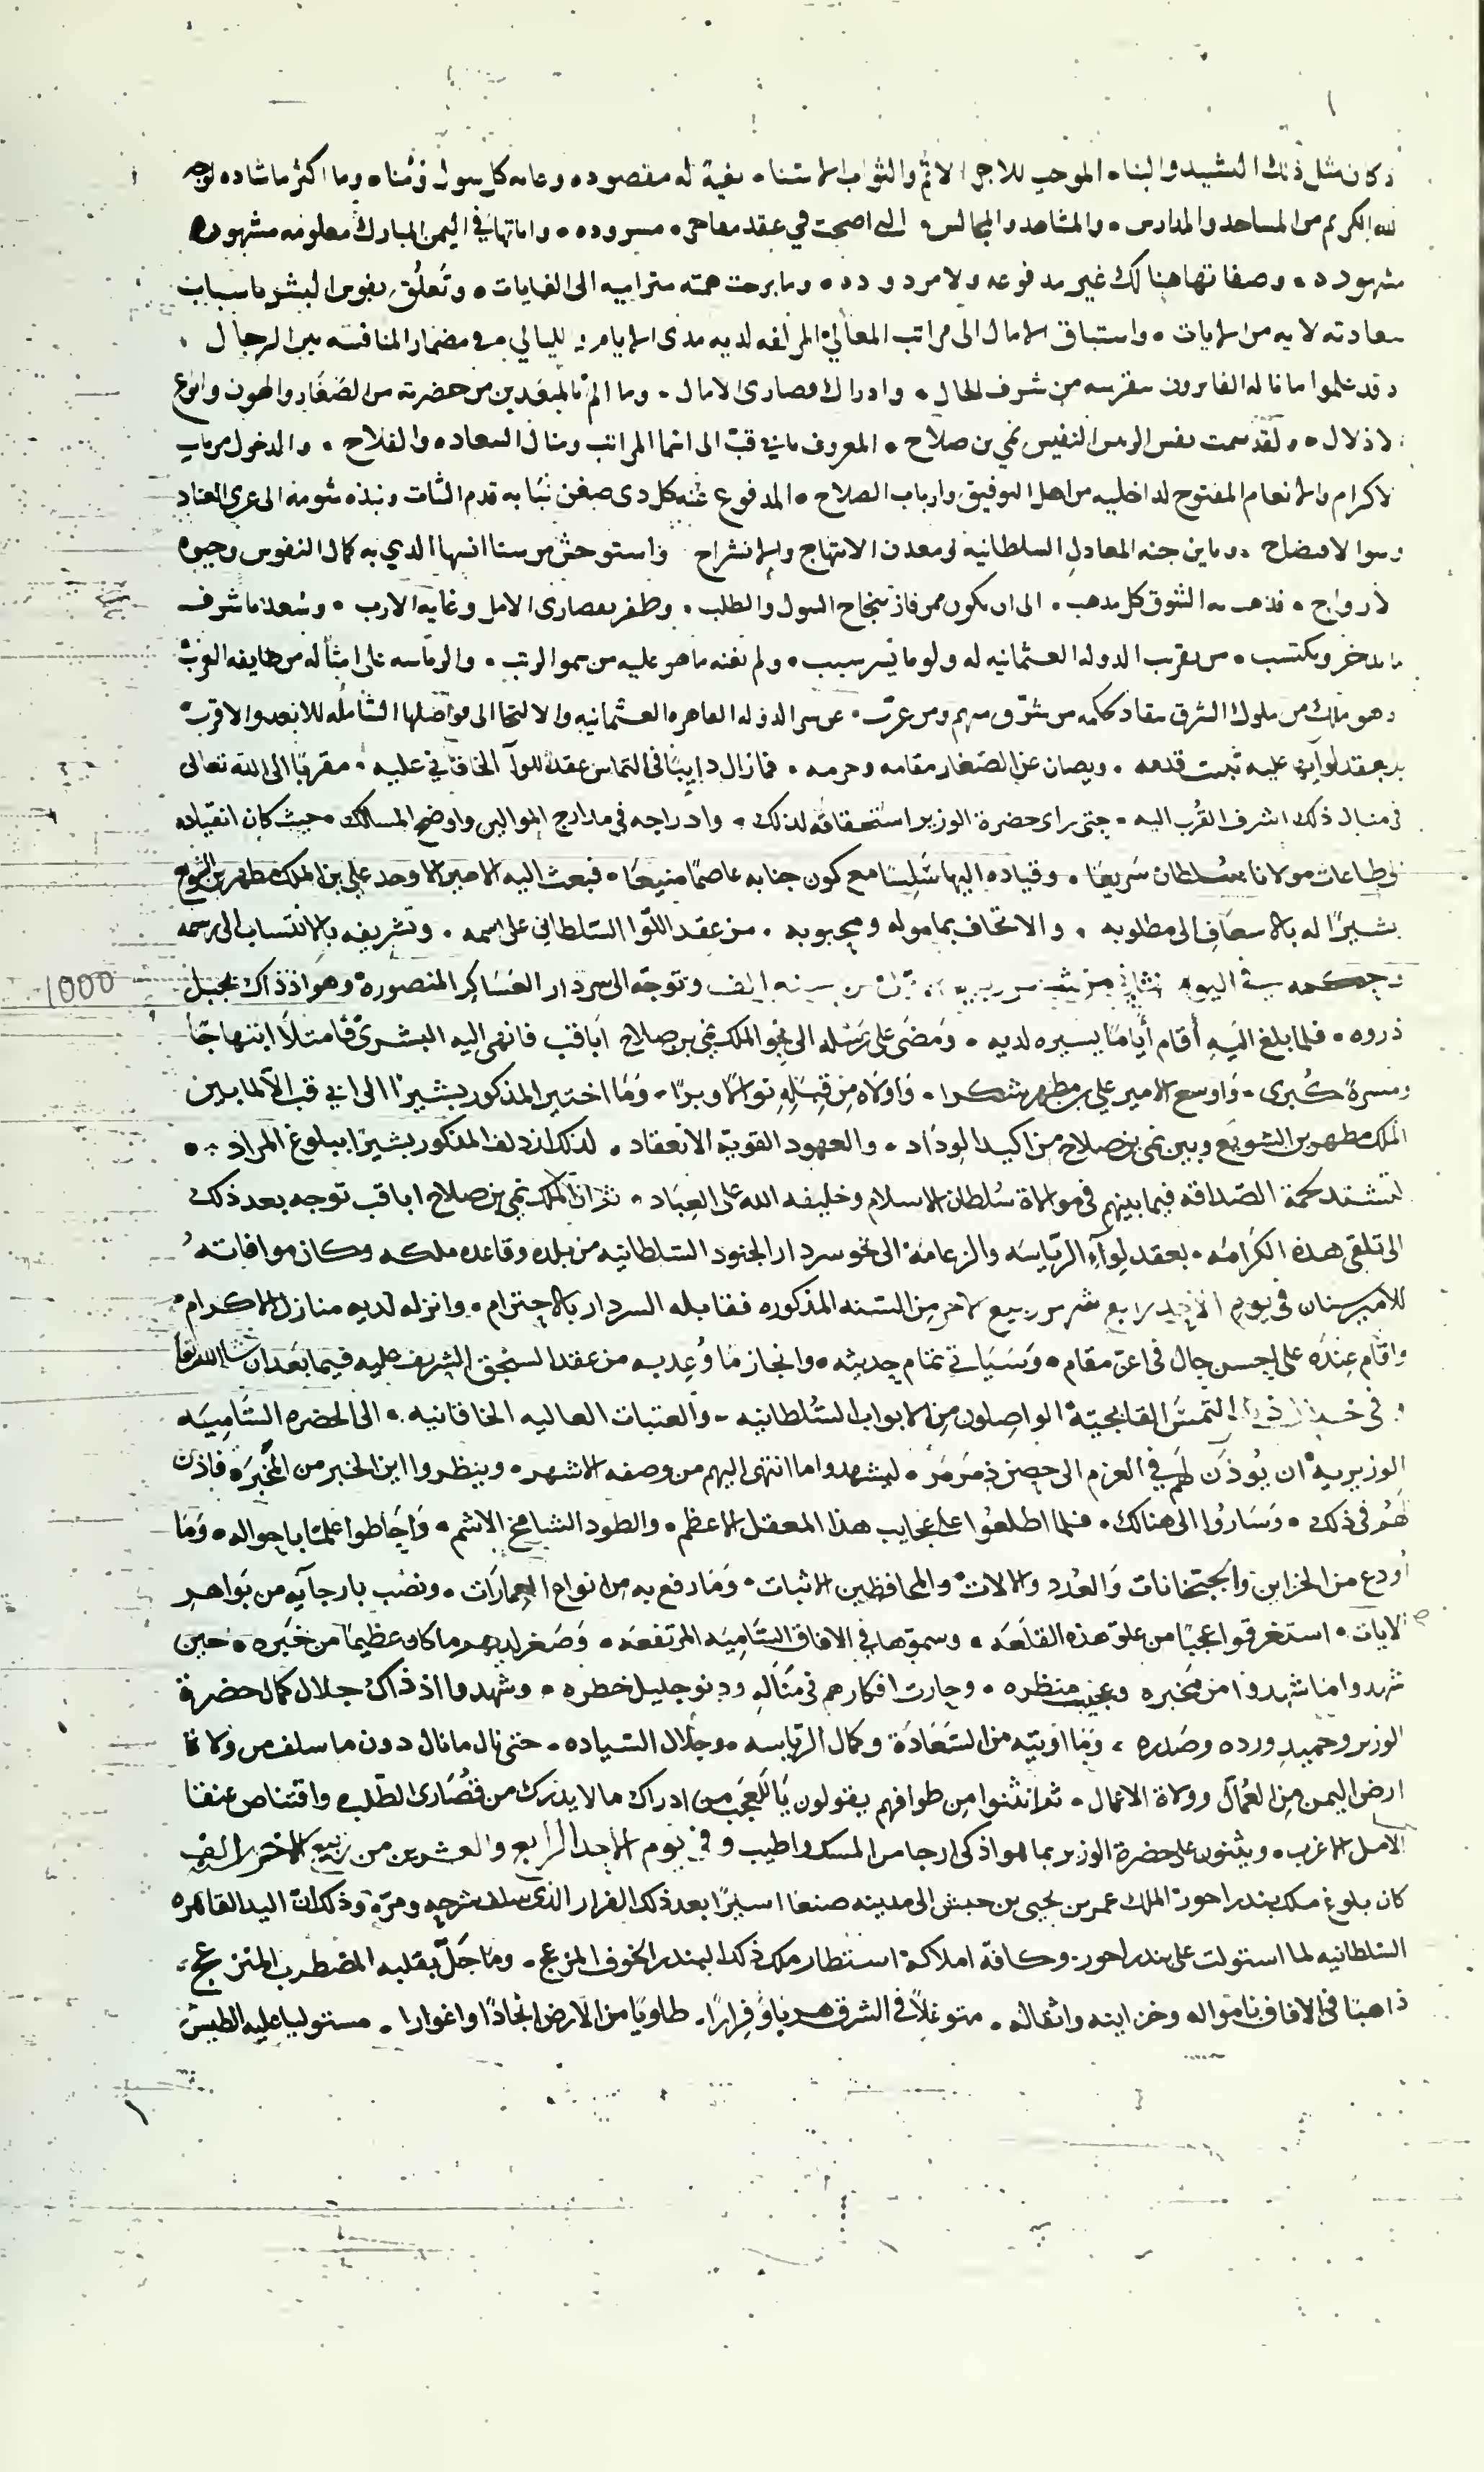 وكان مثل ذلك التشييد والبناء الموجب للاجر الاتم والثواب الاسنا بغية له مقصوده وغايه كل سول ومنا وما اكثر ما شاده لوجه
الله الكريم من المساجد والمدارس والمشاهد والمجالس التى اصبحت في عقد مفاخره مسروده واماتها في اليمن المبارك معلومه مشهوره
مشهوده وصفاتها هنالك غير مدفوعه ولا مردوده وما برحت همته متراميه الى الغايات وتعلق نفوس البشر باسباب
سعادته لايه من الايات واستباق الامال الى مراتب المعالي المزلفه لديه مدى الايام و الليالي في مضمار المنافسه بين الرجال
وقد علموا ما ناله الفايزون بقربه من شرف الحال وادراك قصارى الامال وما الم بالمبعدين من حضرته من الصغار والهون وانواع
الاذلال ولقد سمت نفس الريس النفيس نمي بن صلاح المعروف بابي قب الى انما المراتب ومنال السعاده والفلاح والدخول من باب
الاكرام والانعام المفتوح لداخليه من اهل التوفيق وارباب الصلاح المدفوع عنه كل ذى ضغن نبا به قدم الثبات ونبذه شومه الى عرى العناد
وسوا الافتضاح وباين جنه المعادل السلطانيه في معدن الابتهاج والانشراح واستوحش من سنا انسها الذي به كمال النفوس وحيوه
الارواح فذهب به الشوق كل مذهب الى ان يكون ممن فاز بنجاح السول والطلب وظفر بقصارى الامل وغايه الارب وسعد باشرف
ما يدخر ويكتسب من تقرب الدوله العثمانيه له ولو ما تيسر سبب ولم يغنه ما هو عليه من سمو الرتب والرياسه على امثاله من طايفه العرب
وهو ملك من ملوك الشرق ينقاد لحكمه من شرق منهم ومن غرب عن سر الدوله القاهره العثمانيه والالتجا الى فواضلها الشامله للابعد والاقرب
بعقد لواء عليه تثبت قدمه ويصان عن الصغار مقامه وحرمه فما زال دايبا في التماس عقد اللوآ الخاقاني عليه مقربا الى الله تعالى
في منال ذلك اشرف القرب اليه حتى راى حضرة الوزير استحقاقه لذلك وادراجه في مدارج الموالين واوضح المسالك حيث كان انقياده
في طاعات مولانا السلطان سريعا وقياده اليها سلسا مع كون جنابه عاصما منيعا فبعث اليه الامير الاوحد علي بن الملك مطهر بن الشويع
بشيرا له بالاسعاف الى مطلوبه والاتحاف بماموله ومحبوبه من عقد اللوا السلطاني على اسمه وتشريفه بالانتساب الى رسمه
وحكمه في اليوم الثاني من شهر سنه الف وتوجه الى سردار العساكر المنصورة وهو اذ ذاك بجبل
ذروه فلما بلغ اليه أقام أياما يسيره لديه ومضى على رسله الى نحو الملك نمي بن صلاح اباقب فانهى اليه البشرى فامتلا ابتهاجا
ومسرة كبرى واوسع الامير علي بن مطهر شكرا واولاه من قبله نوالا وبرا وما اختير المذكور بشيرا الى ابي قب الا لما بين
الملك مطهر بن الشويع وبين نمي بن صلاح من اكيد الوداد والعهود القوية الانعقاد لذلك ازدلف المذكور بشيرا ببلوغ المراد
لتشتد لحمة الصداقه فيما بينهم في موالاة سلطان الاسلام وخليفه الله على العباد ثم ان الملك نمي بن صلاح اباقب توجه بعد ذلك
الى تلقي هذه الكرامه بعقد لوآء الرياسه والزعامة الى نحو سردار الجنود السلطانيه من بلده وقاعده ملكه وكان موافاته
للامير سنان في يوم الاحد رابع شهر ربيع الاخر من السنه المذكوره فقابله السردار بالاحترام وانزله لديه منازل الاكرام
واقام عنده على احسن حال في اعز مقام وسياتي تمام حديثه وانجاز ما وعد به من عقد السنجق الشريف عليه فيما بعد ان شا الله تعالى
و في خلال ذلك التمس القابجية الواصلون من الابواب السلطانيه والعتبات العاليه الخاقانيه الى الحضره الساميه
الوزيرية ان يوذن لهم في العزم الى حصن ذمرمر ليشهدوا ما انتهى اليهم من وصفه الاشهر وينظروا اين الخبر من المخبره فاذن
لهم في ذلك وساروا الى هنالك فلما اطلعوا على عجايب هذا المعقل الاعظم والطود الشامخ الاشم واحاطوا علما باحواله وما
اودع من الخزاين والجبخانات والعدد والالات والمحافظين الاثبات وما رفع به من انواع العمارات ونصب بارجآيه من بواهر
الايات استغرقوا عجبا من علو هذه القلعه وسموها في الافاق الساميه المرتفعه وصغر لديهم ما كان عظيما من خبره حين
شهدوا ما شهدوا من مخبره وعجيب منظره وحارت افكارهم في مناله ودنو جليل خطره وشهدوا اذ ذاك جلال كمال حضرة
الوزير وحميد ورده وصدره وما اوتيه من السعادة وكمال الرياسه وجلال السياده حتى نال ما نال دون ما سلف من ولاة
ارض اليمن من العمال وولاة الاعمال ثم انثنوا من طوافهم يقولون يا للعجب من ادراك ما لا يدرك من قصارى الطلب واقتناص عنقا
الامل الاغرب ويثنون على حضرة الوزير بما هو اذكى ارجا من المسك واطيب وفي يوم الاحد الرابع والعشرين من ربيع الاخر الف
كان بلوغ ملك بندر احور الملك عمر بن يحيى بن حبش الى مدينه صنعا اسيرا بعد ذلك الفرار الذي سلف شرحه ومره وذلك ان اليد القاهره
السلطانيه لما استولت على بندر احور وكافة املاكه استطار ملك ذلك البندر الخوف المزعج وما حل بقلبه المضطرب المنزعج
ذاهبا في الافاق بامواله وخزاينه واثقاله متوغلا في الشرق هربا وفرارا طاويا من الارض انجادا واغوارا مستوليا عليه الطيش
1000